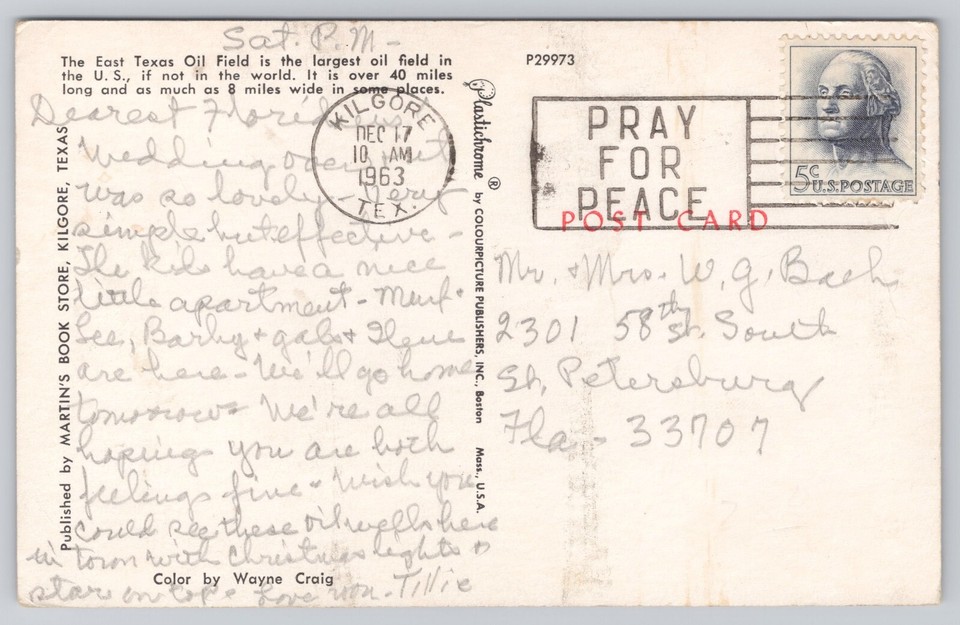 Sat. P.M-
The East Texas Oil Field is the largest oil field in
the U. S., if not in the world. It is over 40 miles
long and as much as 8 miles wide in some places.
Dearest
Wedding over
was so lovely - Very
simple but effective -
The kids have a nice
little apartment - Murf +
Lee, Barby + gabs + Ilene
are here - We'll go home
tomorrow - We're all
hoping you are both
feeling fine - Wish you
could see these oil wells here
in town with Christmas lights &
stars on top. Love Tillie
Color by Wayne Craig
Published by MARTIN'S BOOK STORE, KILGORE, TEXAS
Plastichrome ® by COLOURPICTURE PUBLISHERS, INC., Boston Mass., U.S.A.
KILGORE
DEC 17
10 AM
1963
TEX.
P29973
PRAY
FOR
PEACE
POST CARD
5c U.S. POSTAGE
Mr. & Mrs. W. G. Bach
2301 58th St. South
St. Petersburg
Fla - 33707